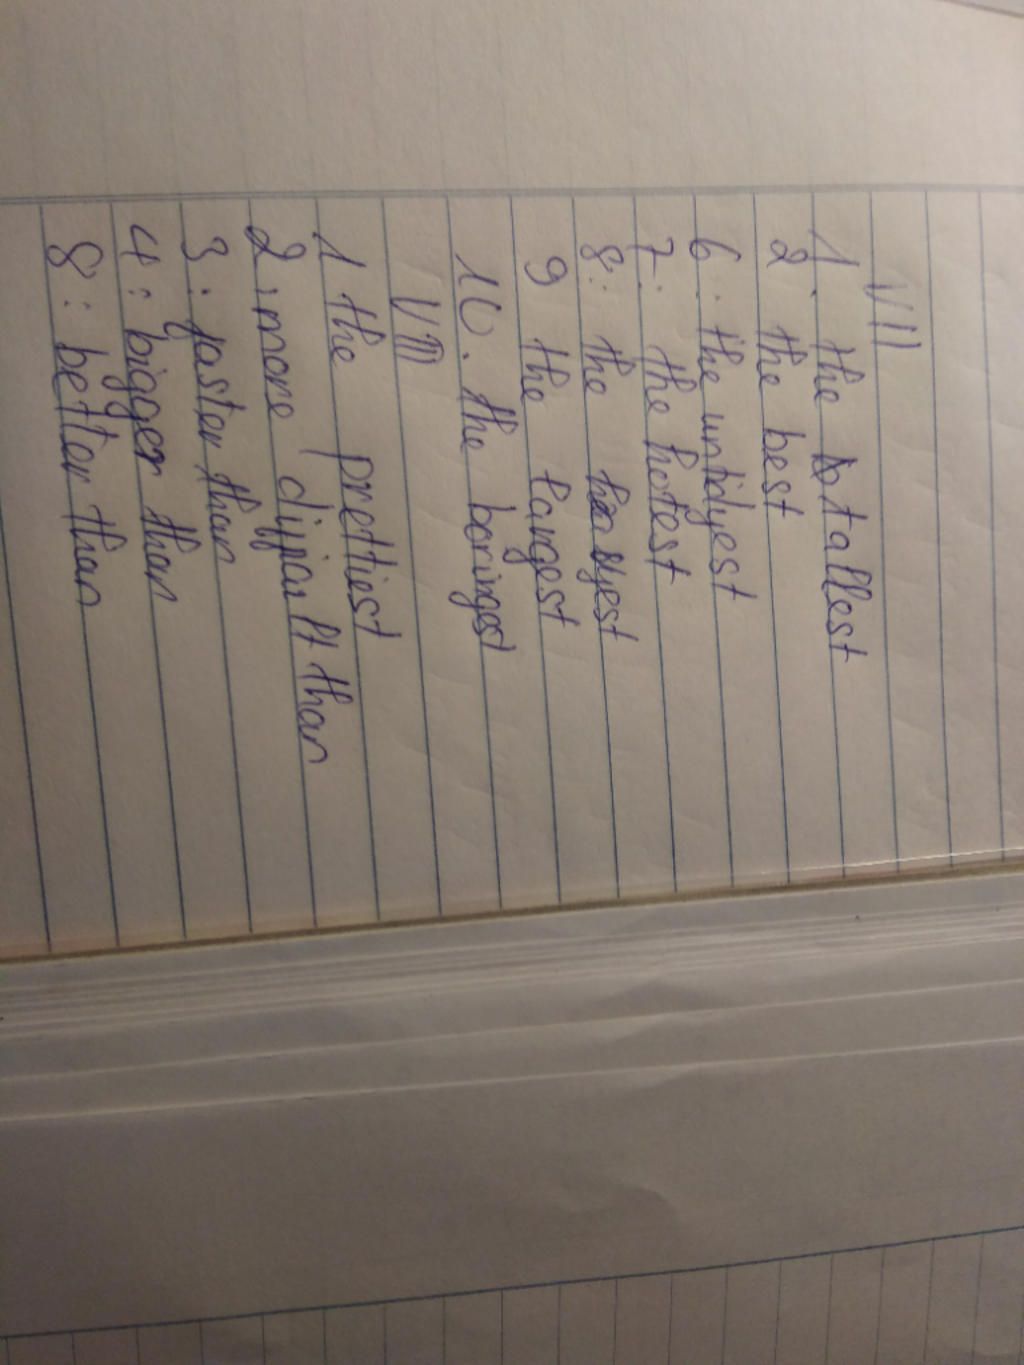 VII
1. the tallest
2 the best
6. the untidyest
7. the hotest
8. the
9 the largest
10. the boringest
VIII
1 the prettiest
2. more difficult than
3. faster than
4. bigger than
8. better than